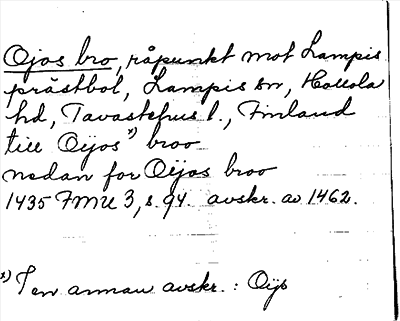 Ojos bro, råpunkt mot Lampis
prästbol, Lampis sn, Hollola
hd, Tavastehus l., Finland
till Oijos x) broo
nedan for Oijos broo
1435 FMU 3, s. 94. avskr. av 1462.
x) I en annan avskr.: Oijs